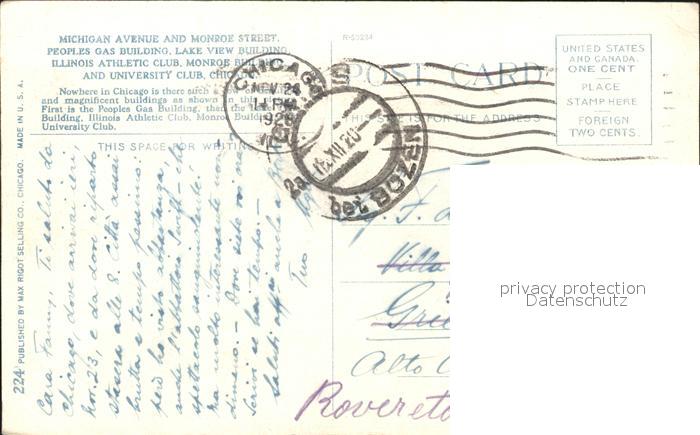 MICHIGAN AVENUE AND MONROE STREET.
PEOPLES GAS BUILDING, LAKE VIEW BUILDING,
ILLINOIS ATHLETIC CLUB, MONROE BUILDING
AND UNIVERSITY CLUB, CHICAGO
Nowhere in Chicago is there such
and magnificent buildings as shown in this
First is the Peoples Gas Building, then the
Building, Illinois Athletic Club, Monroe Building
University Club.
THIS SPACE FOR WRITING
R-53234
POST CARD
THIS SIDE IS FOR THE ADDRESS
UNITED STATES
AND CANADA
ONE CENT
PLACE
STAMP HERE
FOREIGN
TWO CENTS.
CHICAGO
NOV 24
BOZEN
2a
224 PUBLISHED BY MAX RIGOT SELLING CO., CHICAGO. MADE IN U.S.A.
Cara Fanny, Ti saluto da
Chicago, dove arrivai ieri,
Nov. 23, e da dove riparto
stasera alle 8. Città assai
brutta e tempo pessimo:
però ho visto abbastanza,
anche l'abattoir Swift - che
spettacolo
ma molto interessante non
dimeno. - Dove siete voi
Scrivi se hai tempo. -
Saluti aff. anche a
Tuo
Villa
Alto
Rovereto
privacy protection
Datenschutz